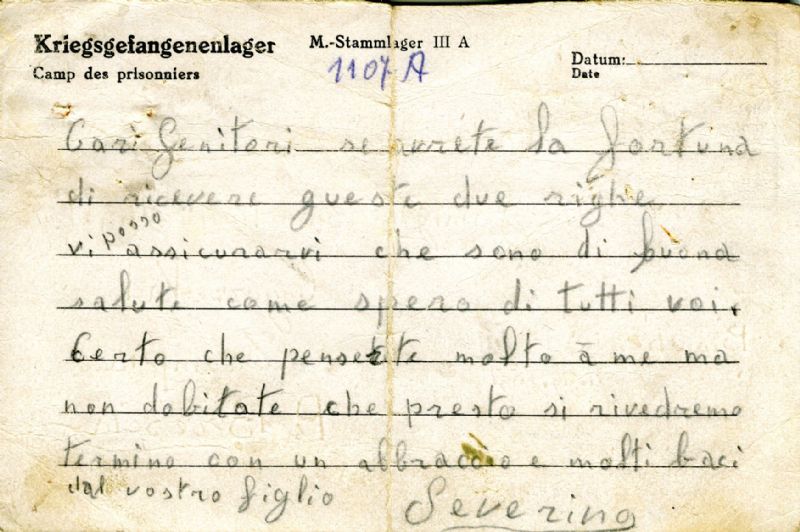 Kriegsgefangenenlager M.-Stammlager III A
Camp des prisonniers
1107 A
Datum:
Date
Cari Genitori se avrete la fortuna
di ricevere queste due righe
vi posso assicurarvi che sono di buona
salute come spero di tutti voi.
Certo che penserete molto à me ma
non dobitate che presto si rivedremo
termino con un abbraccio e molti baci
dal vostro figlio Severino